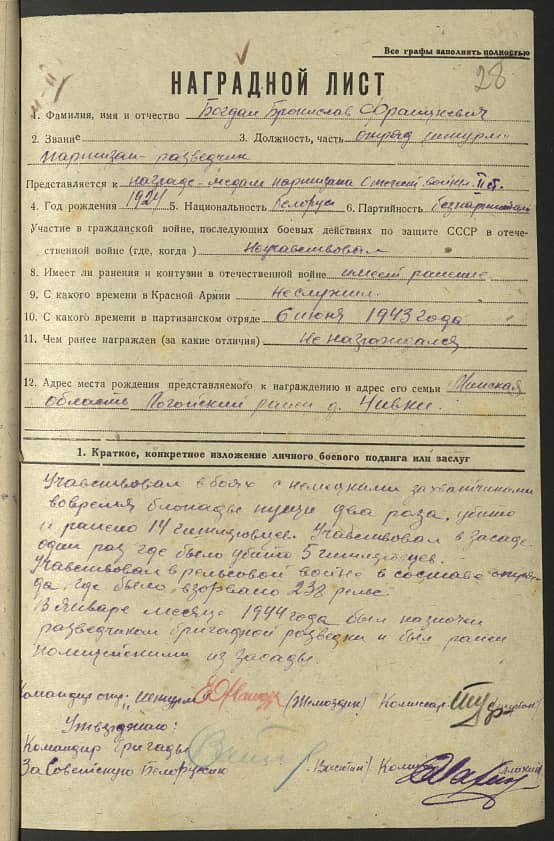 Все графы заполнять полностью
28
НАГРАДНОЙ ЛИСТ
1. Фамилия, имя и отчество Богдан Бронислав Францкевич
2. Звание 3. Должность, часть отряд штурм
партизан-разведчик
Представляется к награде-медали партизана отечест войны II ст.
4. Год рождения 1924 5. Национальность белорус 6. Партийность безпартийный
Участие в гражданской войне, последующих боевых действиях по защите СССР в отече-
ственной войне (где, когда) Неучавствовал
8. Имеет ли ранения и контузии в отечественной войне имеет ранение
9. С какого времени в Красной Армии Неслужил
10. С какого времени в партизанском отряде 6 июня 1943 года
11. Чем ранее награжден (за какие отличия) Не награждался
12. Адрес места рождения представляемого к награждению и адрес его семьи Минская
область Логойский район д. Чивки.
1. Краткое, конкретное изложение личного боевого подвига или заслуг
Учавствовал в боях с немецкими захватчиками
вовремя блокады пущи два раза, убито
и ранено 14 гитлеровцев. Учавствовал в засаде
один раз где было убито 5
Учавствовал в рельсовой войне в составе отря-
да, где было взорвано 238 рельс.
В январе месяце 1944 года был назначен
разведчиком бригадной разведки и был ранен
полицейскими из засады.
Командир отр. "Штурм" Комиссар
Утверждаю:
Командир бригады
За Советскую Белоруссию